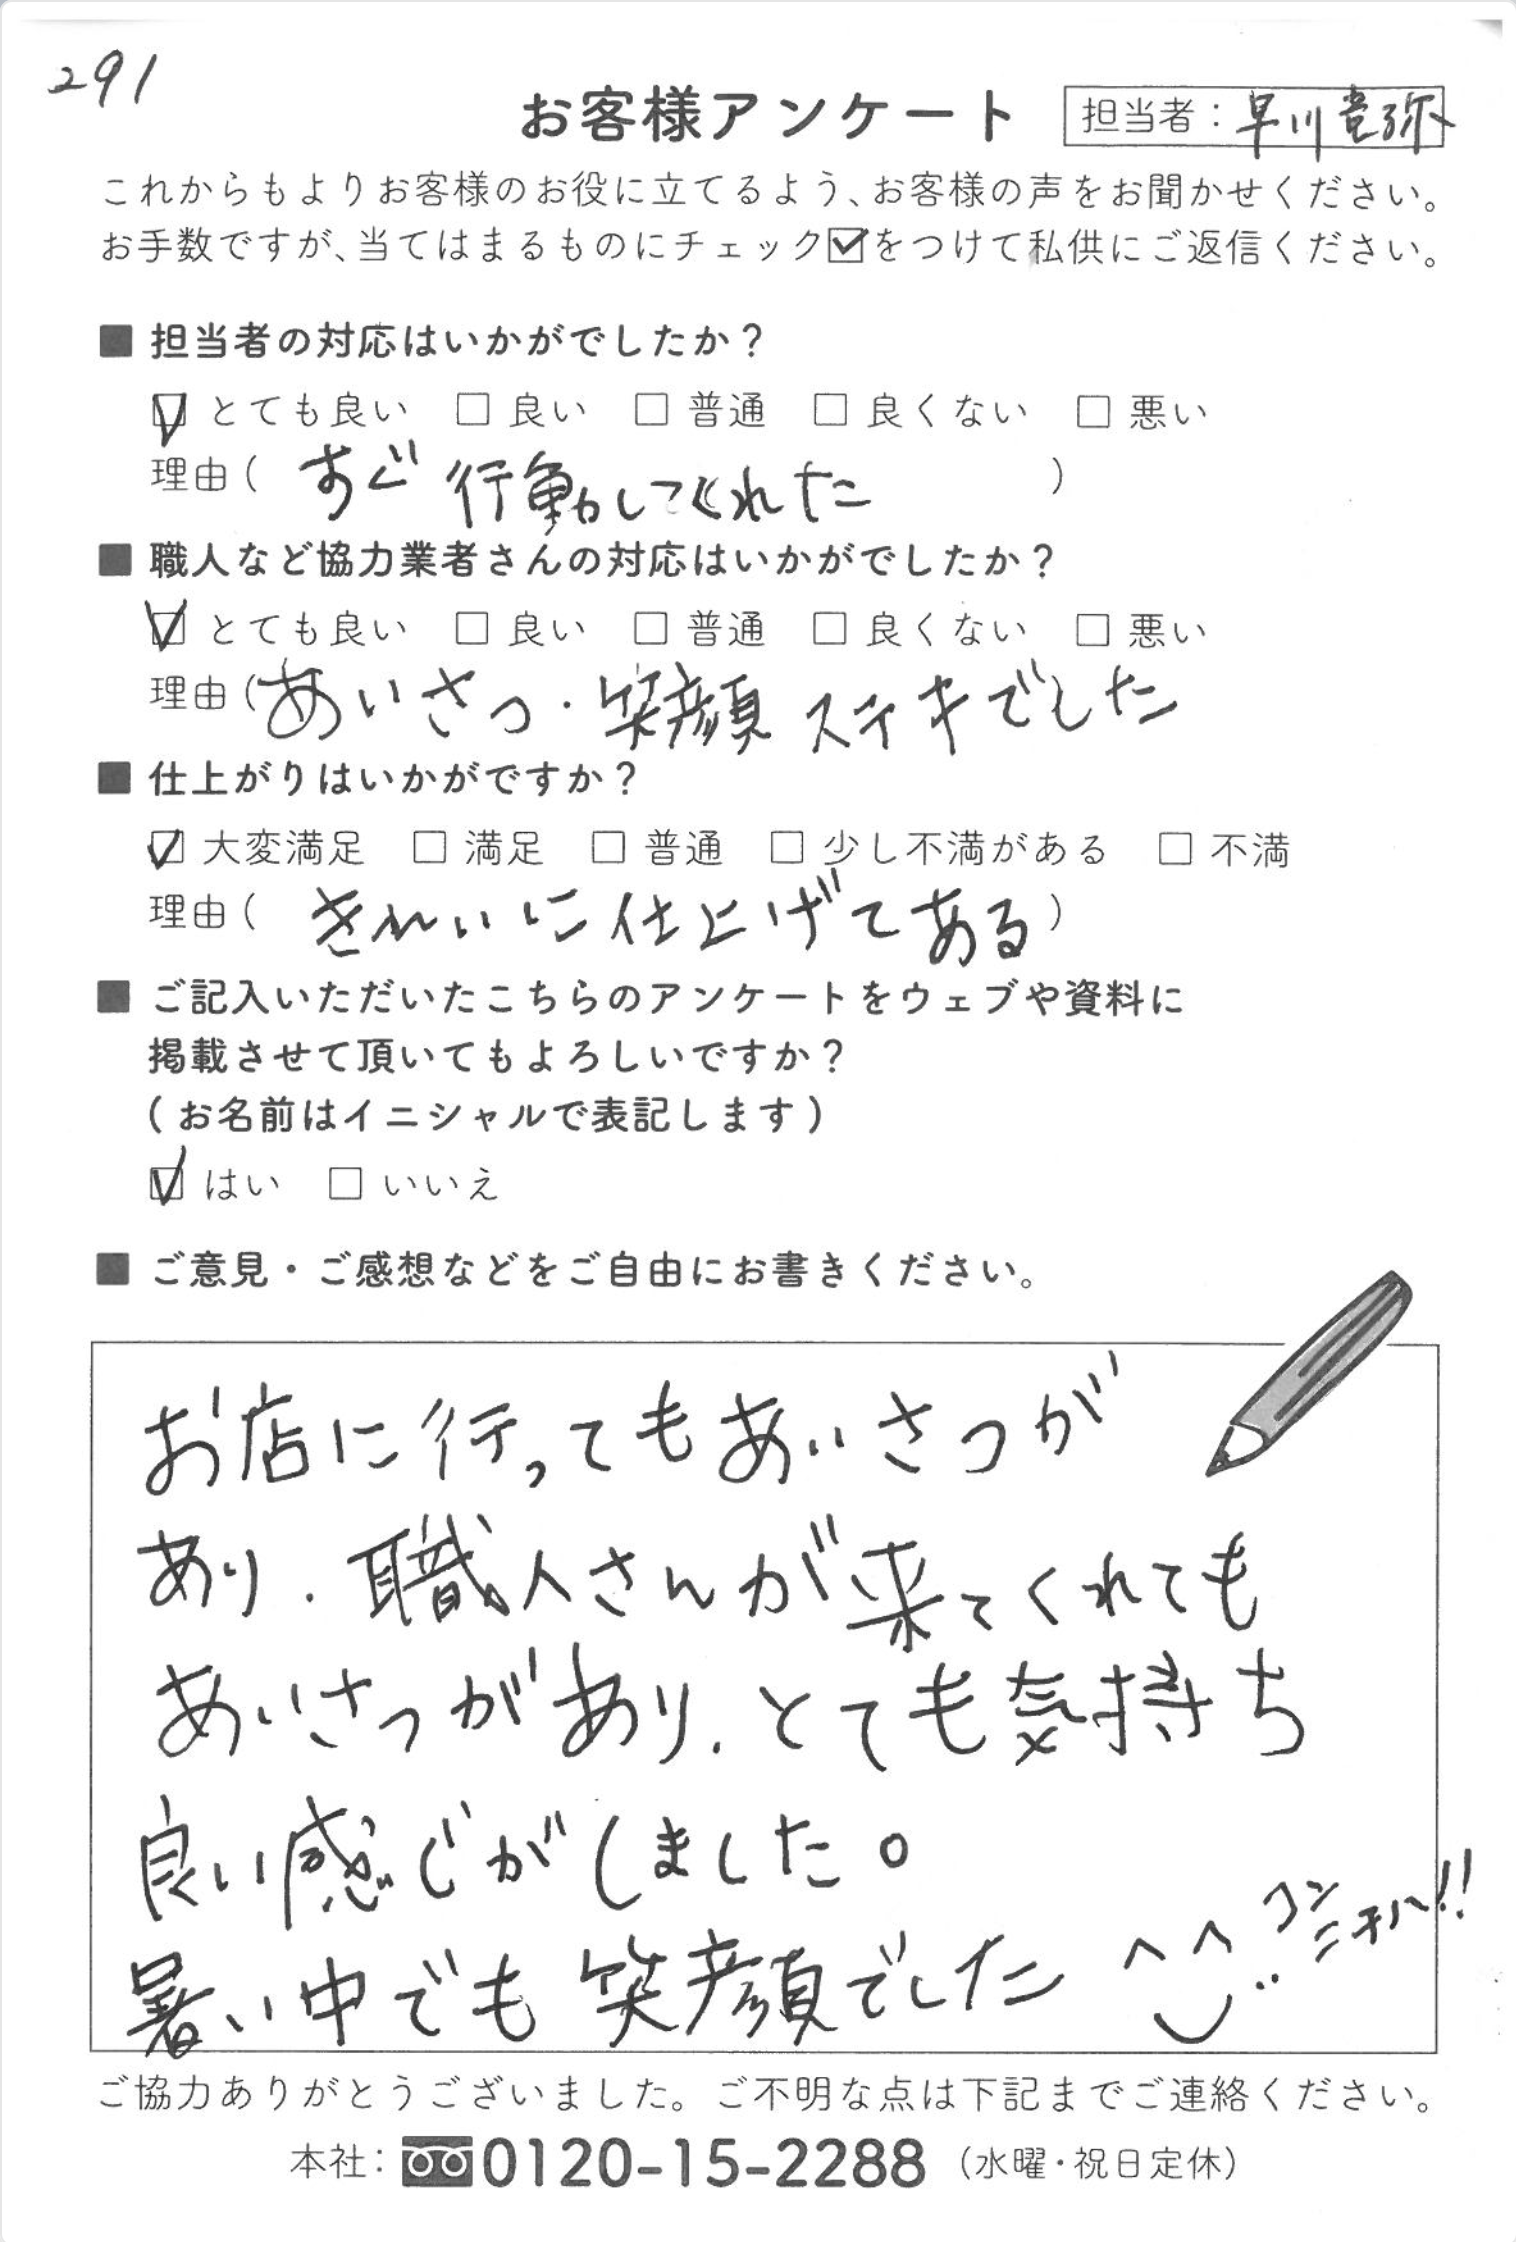 291
お客様アンケート 担当者：早川竜弥
これからもよりお客様のお役に立てるよう、お客様の声をお聞かせください。
お手数ですが、当てはまるものにチェック☑をつけて私供にご返信ください。
■ 担当者の対応はいかがでしたか？
☑ とても良い □ 良い □ 普通 □ 良くない □ 悪い
理由( すぐ行動してくれた )
■ 職人など協力業者さんの対応はいかがでしたか？
☑ とても良い □ 良い □ 普通 □ 良くない □ 悪い
理由(あいさつ・笑顔ステキでした
■ 仕上がりはいかがですか？
☑ 大変満足 □ 満足 □ 普通 □ 少し不満がある □ 不満
理由( きれいに仕上げてある )
■ ご記入いただいたこちらのアンケートをウェブや資料に
掲載させて頂いてもよろしいですか？
(お名前はイニシャルで表記します)
☑ はい □ いいえ
■ ご意見・ご感想などをご自由にお書きください。
お店に行ってもあいさつが
あり、職人さんが来てくれても
あいさつがあり、とても気持ち
良い感じがしました。
暑い中でも笑顔でした
コンニチハ!!
ご協力ありがとうございました。ご不明な点は下記までご連絡ください。
本社：0120-15-2288（水曜・祝日定休）